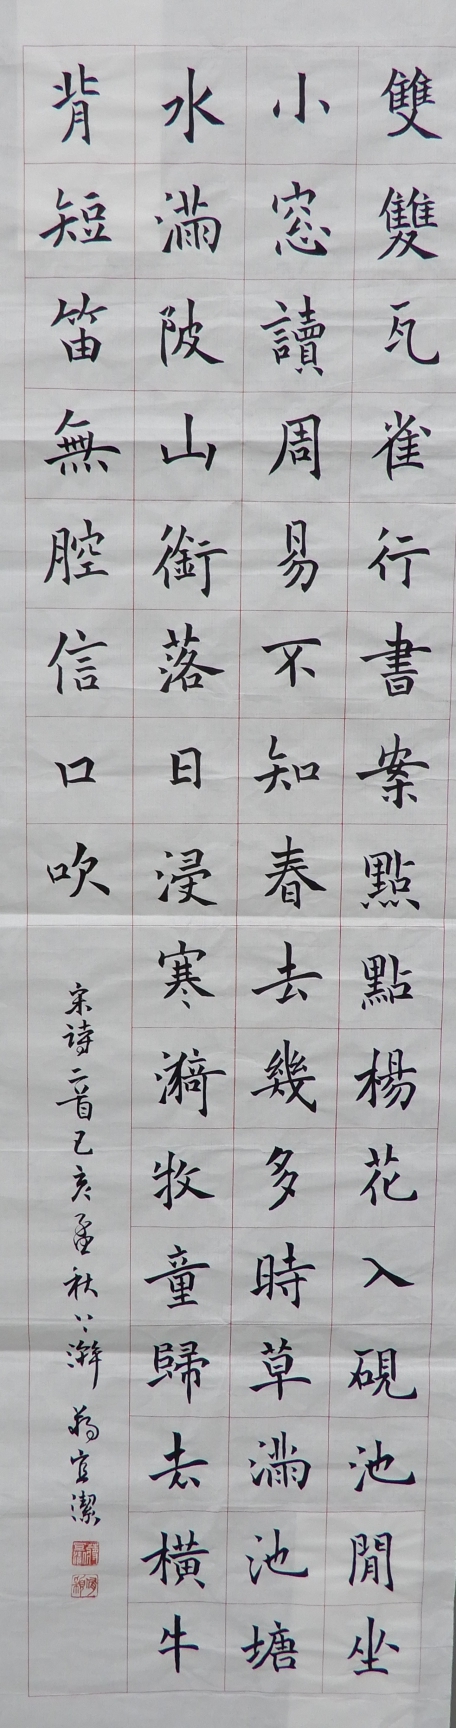 雙雙瓦雀行書案點點楊花入硯池閒坐
小窓讀周易不知春去幾多時草滿池塘
水滿陂山銜落日浸寒漪牧童歸去橫牛
背短笛無腔信口吹
宋詩二首己亥孟秋上澣宜潔